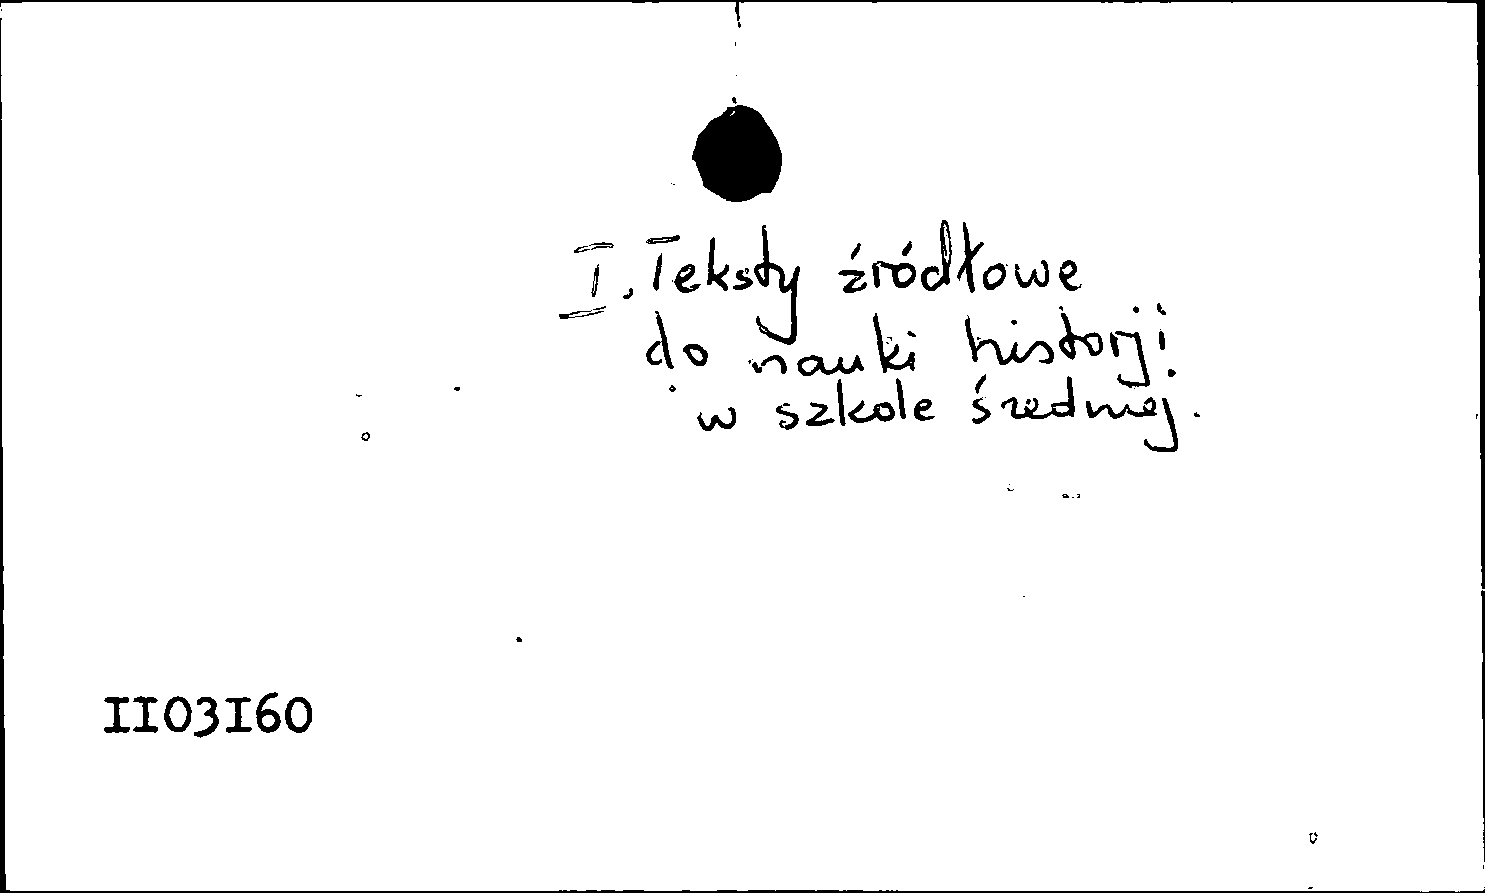 I. Teksty źródłowe
do nauki historji
w szkole średniej.
II03I60